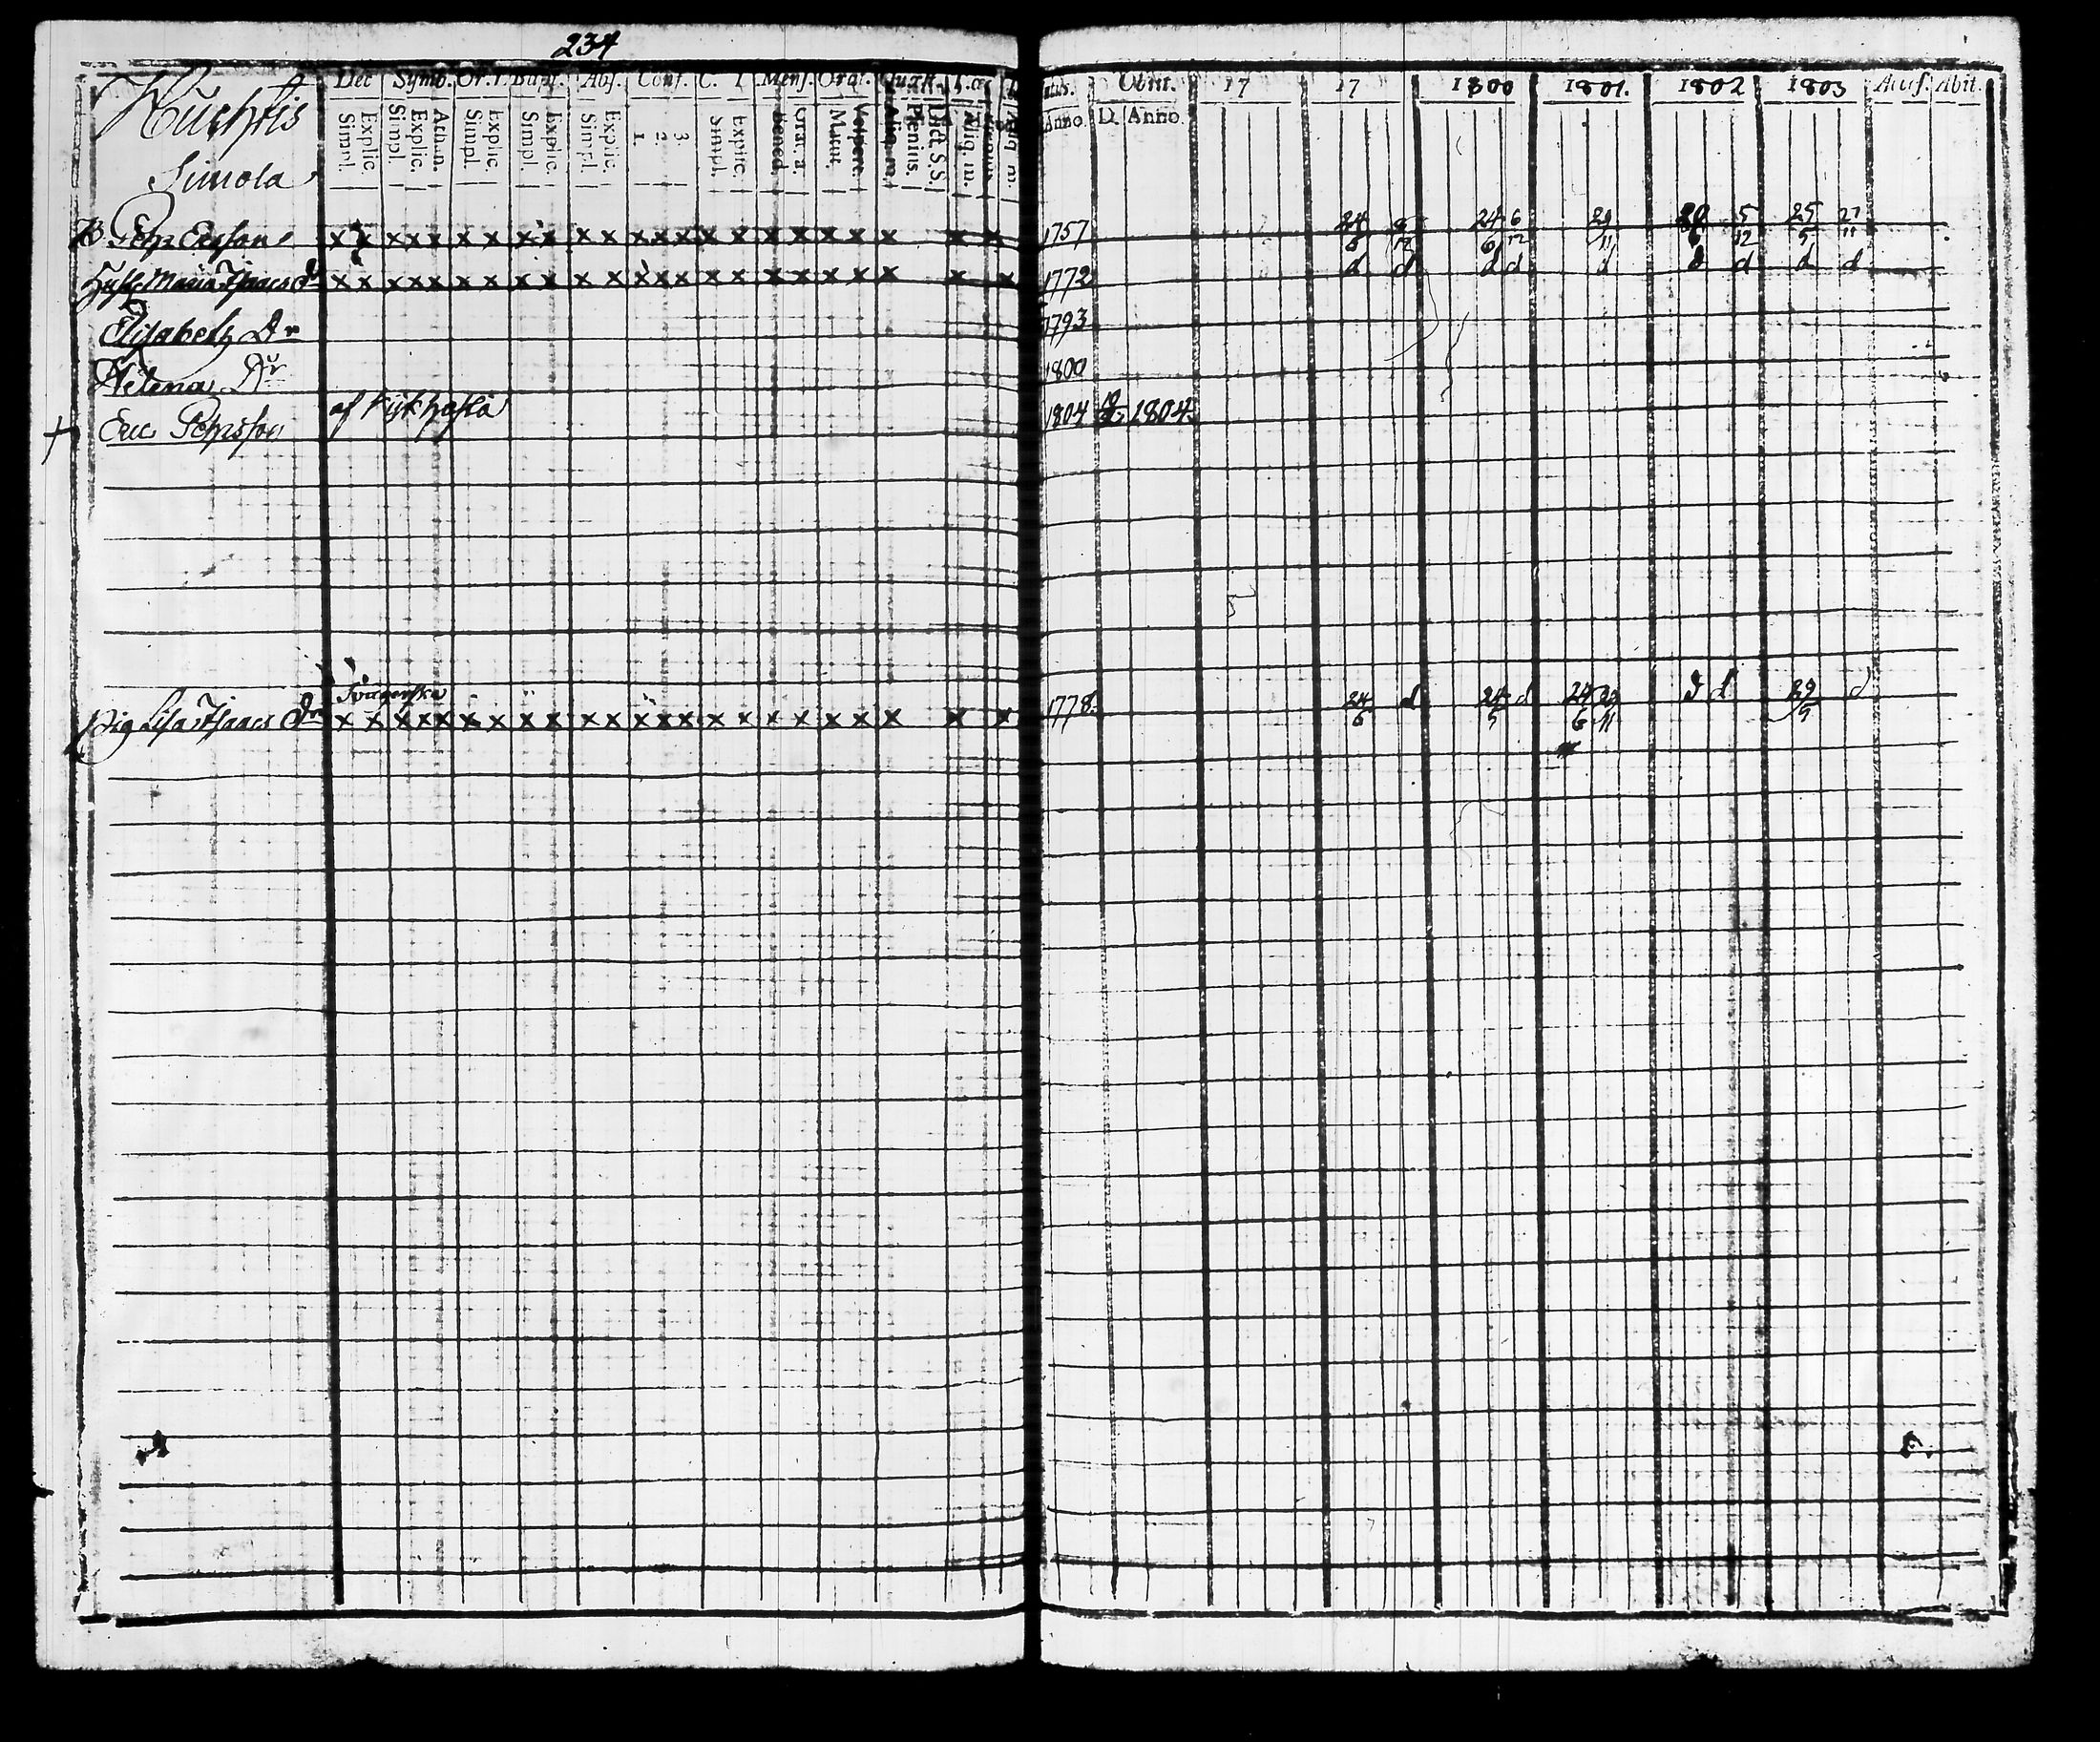 234
Huchtis
Simola
Dec Symb. Or. Bapt. Abs. Conf. C. Mens. Orat. Quæst.
Simpl. Explic. Simpl. Explic. Athan. Simpl. Explic. Simpl. Explic. Simpl. Explic. 1. 2. 3. Simpl. Explic. Bened. Grat. a. Matut. Vespert. Aliq. m. Plenius. Dict. S.S. Aliq. m.
Obiit. 17 17 1800 1801. 1802 1803 Access. Abit.
Anno. D. Anno.
B Pehr Ersson x x x x x x x x x x x x x x x x x x x x x x x 1757 24/6 24/6 6/12 29/11 5/12 25/5 27/11
Hust. Maria Isaacs Dr x x x x x x x x x x x x x x x x x x x x x x x 1772 d d d d d d d d d
Elisabeth Dr 1793
Helena Dr 1800
+ Eric Pehrsson af Kikhosta 1804 1804.
Svägerska
Pig Lisa Isaacs Dr x x x x x x x x x x x x x x x x x x x x x x x 1778. 24/6 d 24/5 d 24/6 22/11 d d 29/5 d